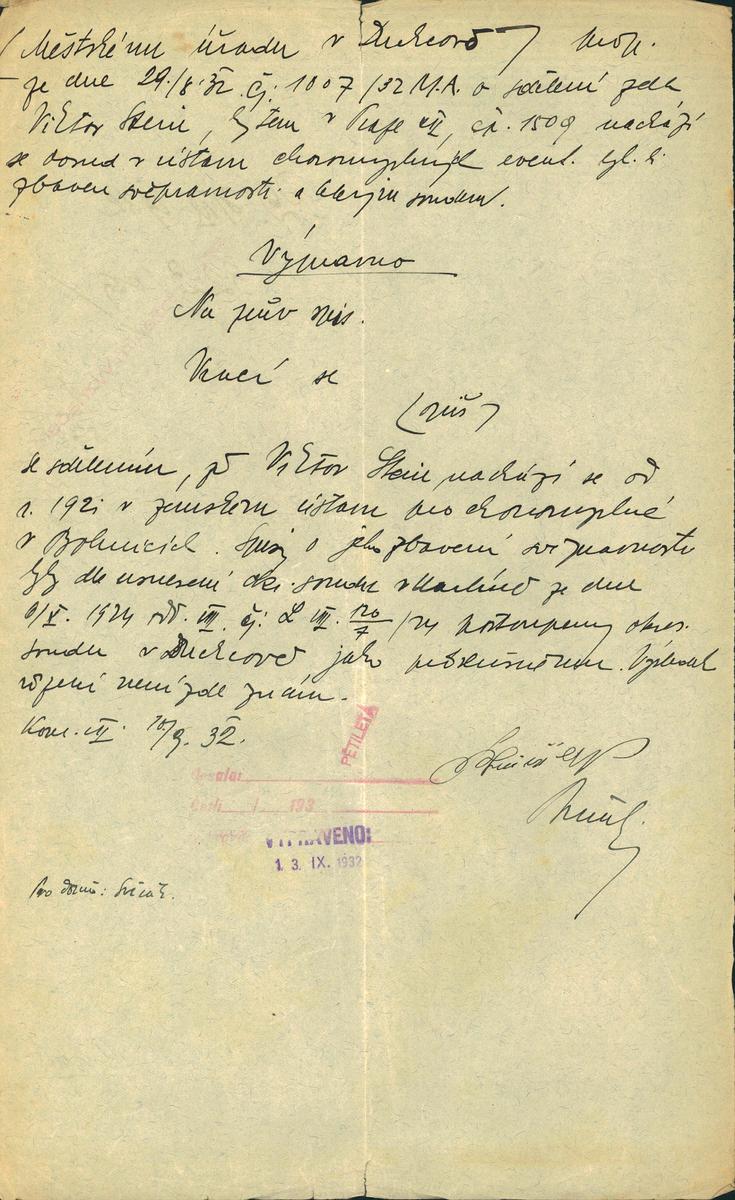 Městskému úřadu v Duchcově
ze dne 29./8.32. čj. 1007/32 M.A. o sdělení zda
Viktor Stein, bytem v Praze XII, čp. 1509 nachází
se dosud v ústavu choromyslných event. byl-li
zbaven svéprávnosti a kterým soudem.
Výmaz
Na pův. spis.
Vrací se
se sdělením, že Viktor Stein nachází se od
r. 1921 v zemském ústavu pro choromyslné
v Bohnicích. Spisy o jeho zbavení svéprávnosti
byly dle usnesení okr. soudu v Karlíně ze dne
1924 odd. III. čj. L III. 120/7 /24 postoupeny okres.
soudu v Duchcově jako příslušnému. Výsledek
řízení není zde znám.
Konc. III. 10./9. 32.
PĚTILETÁ
193
VYPRAVENO:
1 3. IX. 1932
Pro domo: